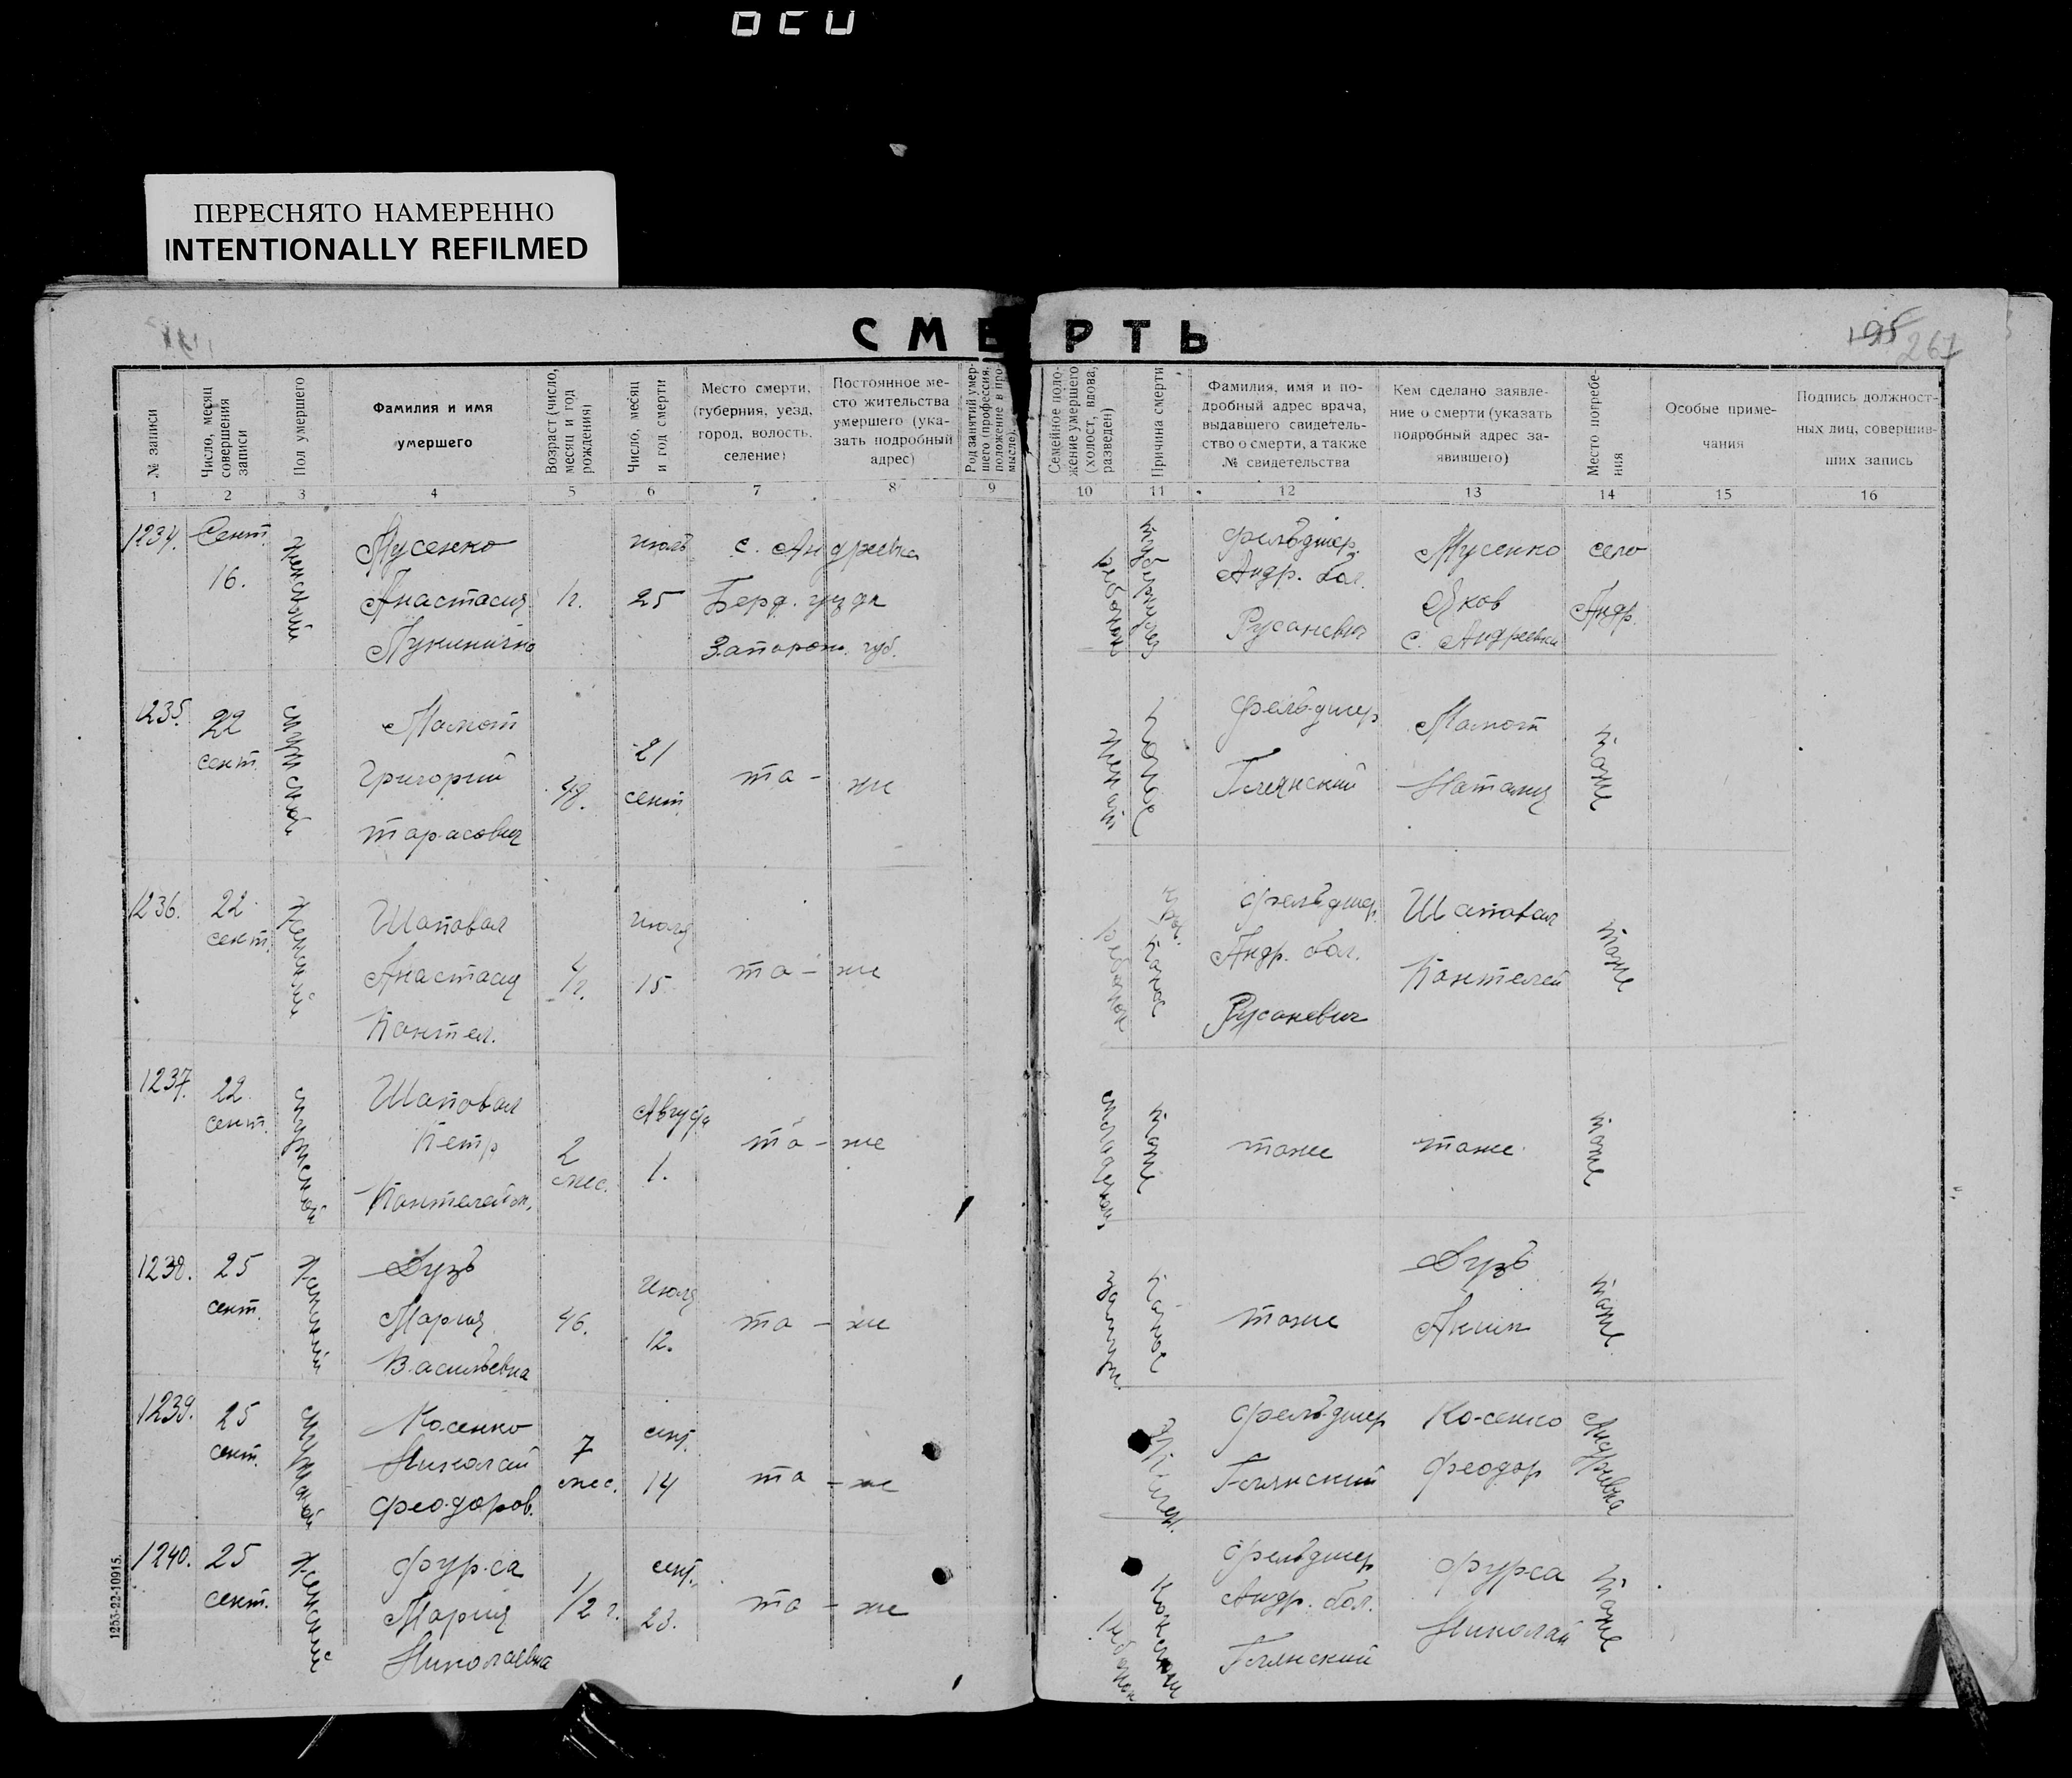 ПЕРЕСНЯТО НАМЕРЕННО
INTENTIONALLY REFILMED
СМЕРТЬ
195
267
№ записи
Число, месяц совершения записи
Пол умершего
Фамилия и имя
умершего
Возраст (число, месяц и год рождения)
Число, месяц и год смерти
Место смерти.
(губерния, уезд,
город, волость.
селение)
Постоянное ме-
сто жительства
умершего (ука-
зать подробный
адрес)
Род занятий умер-
шего (профессия,
положение в про-
мысле).
Семейное поло-
жение умершего
(холост, вдова,
разведен)
Причина смерти
Фамилия, имя и по-
дробный адрес врача,
выдавшего свидетель-
ство о смерти, а также
№ свидетельства
Кем сделано заявле-
ние о смерти (указать
подробный адрес за-
явившего)
Место погребе-
ния
Особые приме-
чания
Подпись должност-
ных лиц, совершив-
ших запись
1 2 3 4 5 6 7 8 9 10 11 12 13 14 15 16
1234.
Сент.
16.
женский
Мусенко
Анастасия
1 г.
июль
25
с. Андреевка
Берд. уезда
Запорож. губ.
фельдшер.
Андр. бол.
Русаневич
Мусенко
Яков
с. Андреевка
село
Андр.
1235.
22
сент.
мужской
Мамот
Григорий
тарасович
48.
21
сент.
та - же
фельдшер
Гилянский
Мамот
Наталия
тоже
1236.
22
сент.
женский
Шаповал
Анастасия
Пантел.
июля
15
та - же
фельдшер.
Андр. бол.
Русаневич
Шаповал
Пантелей
тоже
1237.
22
сент.
мужской
Шаповал
Петр
2
мес.
Августа
1.
та - же
тоже
тоже
тоже
тоже
1238.
25
сент.
женский
Дузь
Мария
Васильевна
46.
Июля
12.
та - же
тоже
Дузь
тоже
1239.
25
сент.
мужской
Косенко
Николай
феодоров.
7
мес.
сент.
14
та - же
фельдшер
Гилянский
Косенко
феодор
Андреевка
1240.
25
сент.
женский
фурса
Мария
Николаевна
1/2 г.
сент.
23.
та - же
фельдшер
Андр. бол.
Гилянский
фурса
Николай
тоже
1253-22-10915.